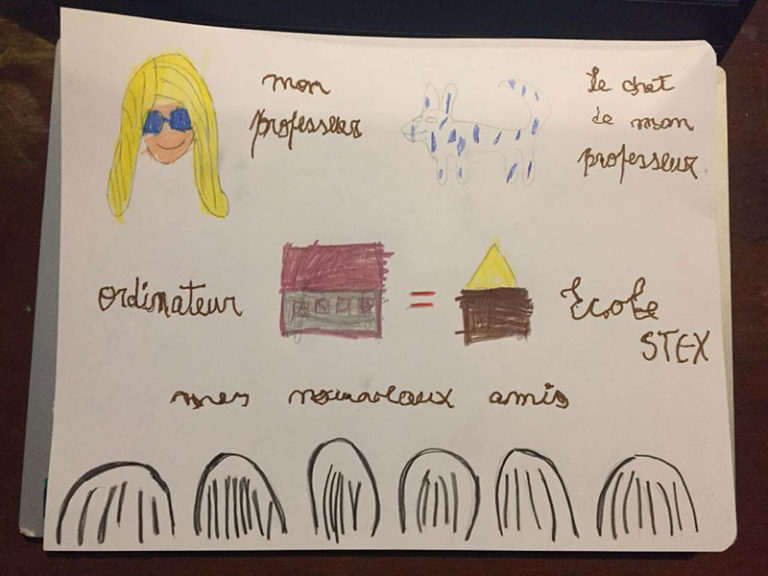 mon
professeur
Le chat
de mon
professeur
ordinateur
=
Ecole
STEX
mes nouveaux amis